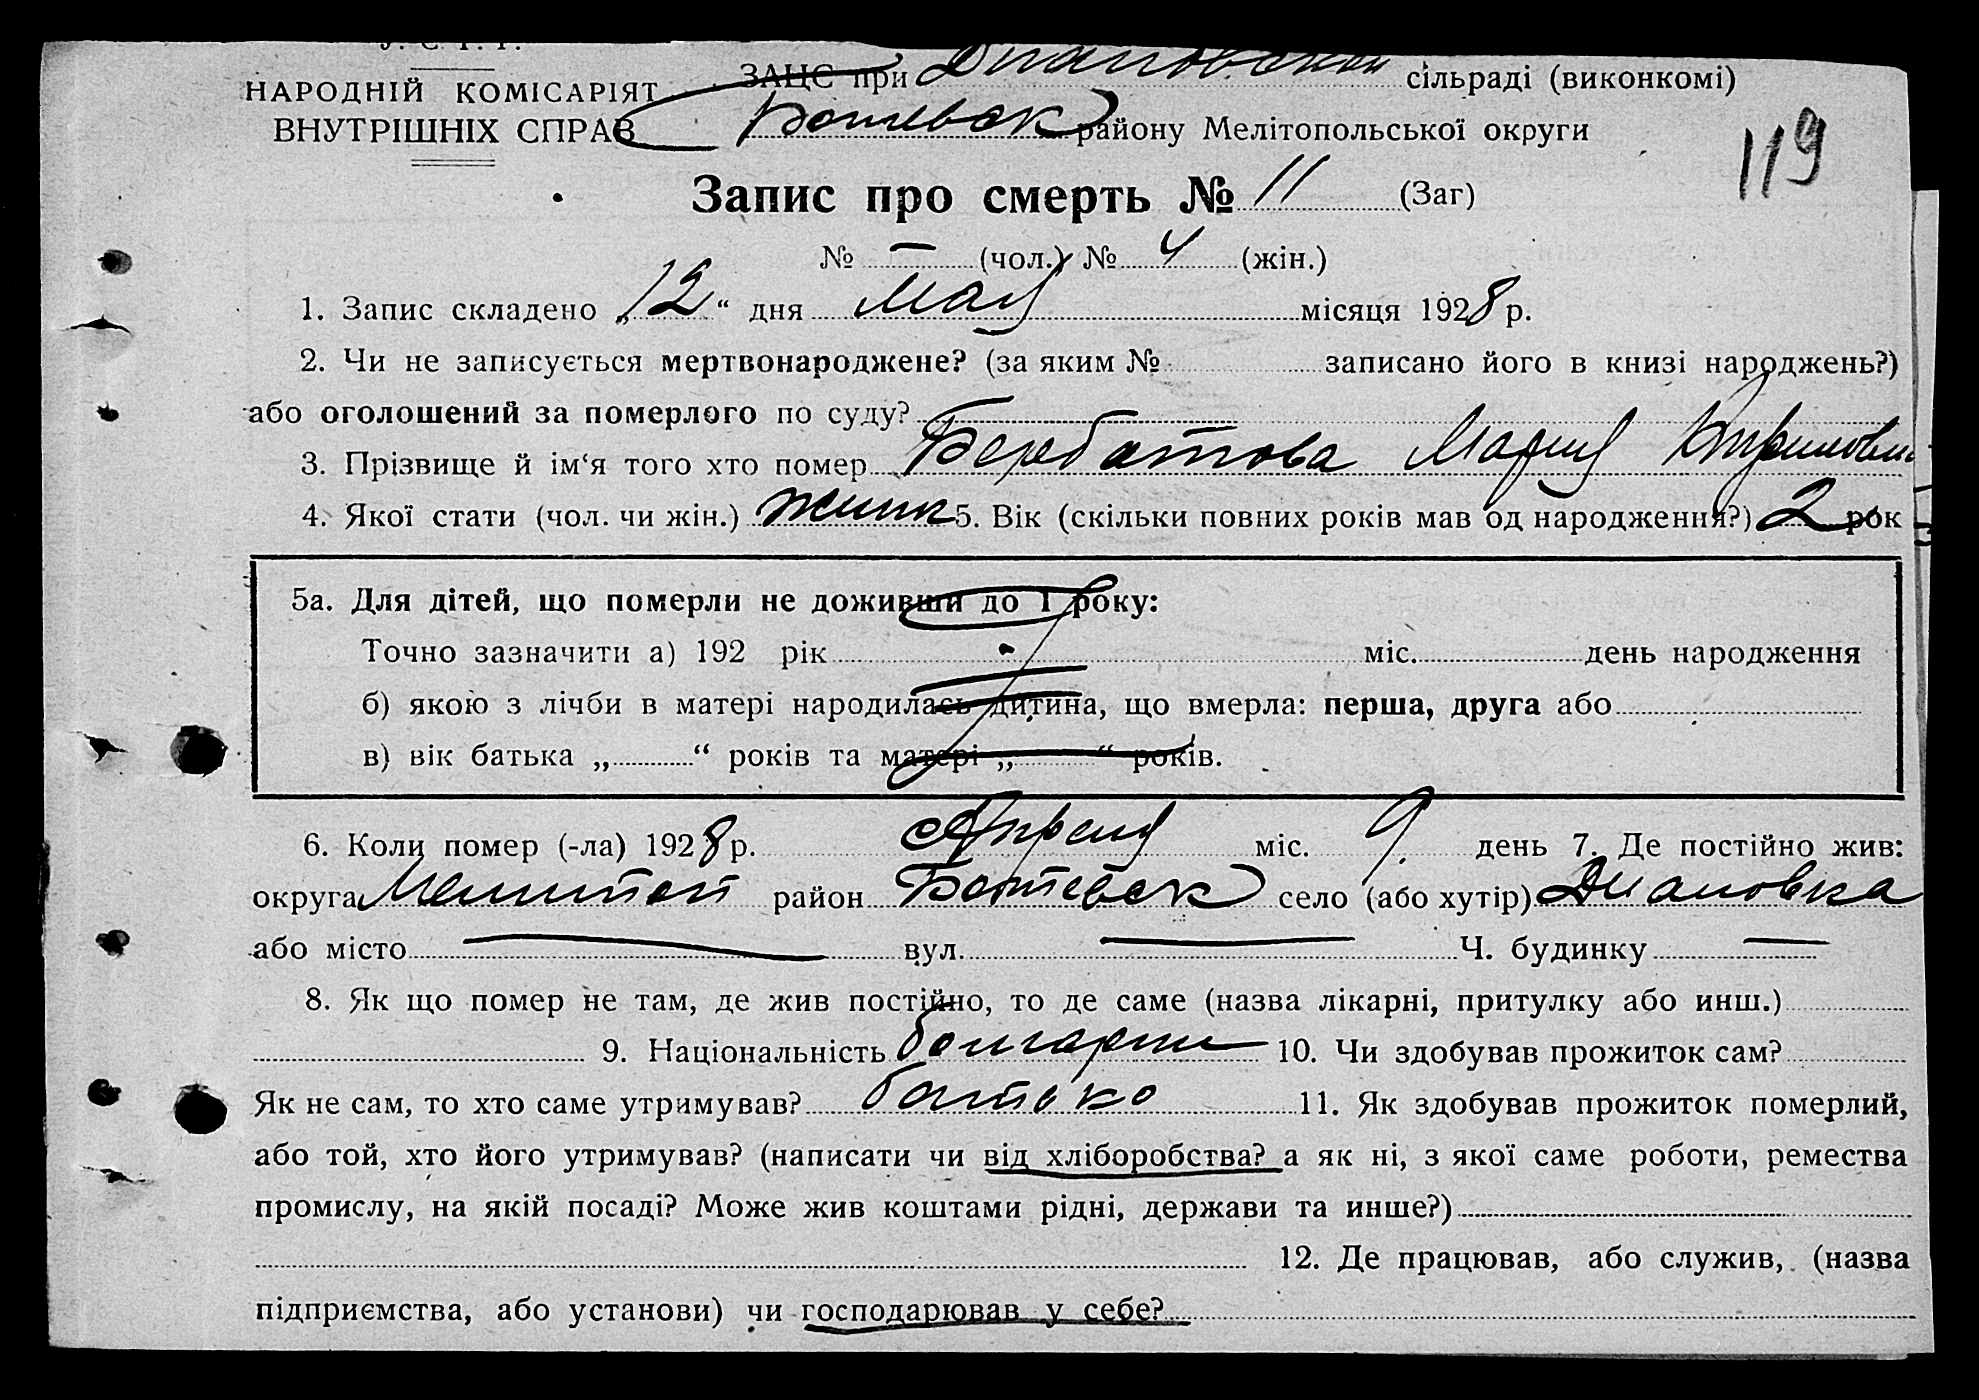 У. С. Р. Р.
НАРОДНІЙ КОМІСАРІЯТ
ВНУТРІШНІХ СПРАВ
ЗАЦС при Диановской сільраді (виконкомі)
Ботевск району Мелітопольської округи
119
Запис про смерть № 11 (Заг)
№ — (чол.) № 4 (жін.)
1. Запис складено „12“ дня мая місяця 1928 р.
2. Чи не записується мертвонароджене? (за яким № записано його в книзі народжень?)
або оголошений за померлого по суду?
3. Прізвище й ім‘я того хто помер Бербатова Мария Кириловн
4. Якої стати (чол. чи жін.) жинк 5. Вік (скільки повних років мав од народження?) 2 рок
5а. Для дітей, що померли не доживши до 1 року:
Точно зазначити а) 192 рік міс. день народження
б) якою з лічби в матері народилась дитина, що вмерла: перша, друга або
в) вік батька „ “ років та матері „ “ років.
6. Коли помер (-ла) 1928 р. Апреля міс. 9 день 7. Де постійно жив:
округа Мелитоп район Ботевск село (або хутір) Диановка
або місто — вул. — Ч. будинку —
8. Як що помер не там, де жив постійно, то де саме (назва лікарні, притулку або инш.)
9. Національність 10. Чи здобував прожиток сам?
Як не сам, то хто саме утримував? батько 11. Як здобував прожиток померлий,
або той, хто його утримував? (написати чи від хліборобства? а як ні, з якої саме роботи, ремества
промислу, на якій посаді? Може жив коштами рідні, держави та инше?)
12. Де працював, або служив, (назва
підприємства, або установи) чи господарював у себе?